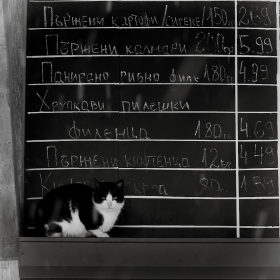 Пържени картофи/сирене/150гр 2.69
Пържени калмари 5.99
Панирано рибно филе 180гр 4.99
Хрупкави пилешки
филенца 180гр 4.69
Пържени кюфтенца 12бр 4.49
1.59